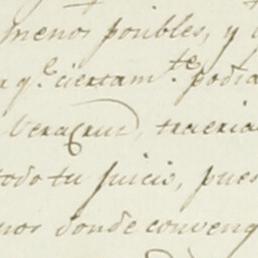 menos posibles, y
q.e ciertam.te podia
Veracruz, traeria
todo tu juicio, pues
donde conveng